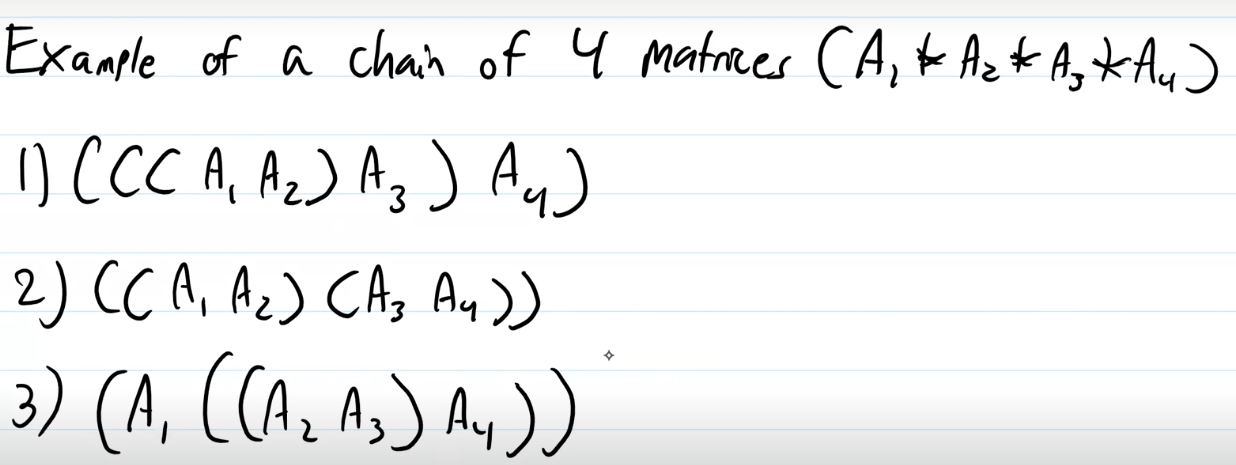 Example of a chain of 4 matrices (A₁ * A₂ * A₃ * A₄)
1) (((A₁ A₂) A₃) A₄)
2) ((A₁ A₂) (A₃ A₄))
3) (A₁ ((A₂ A₃) A₄))